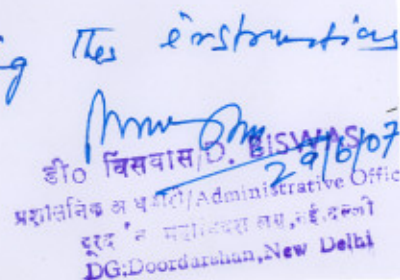 g this instructions
29/6/07
डी० बिसवास/D. BISWAS
प्रशासनिक अधिकारी/Administrative Offic
नई दिल्ली
DG:Doordarshan,New Delhi